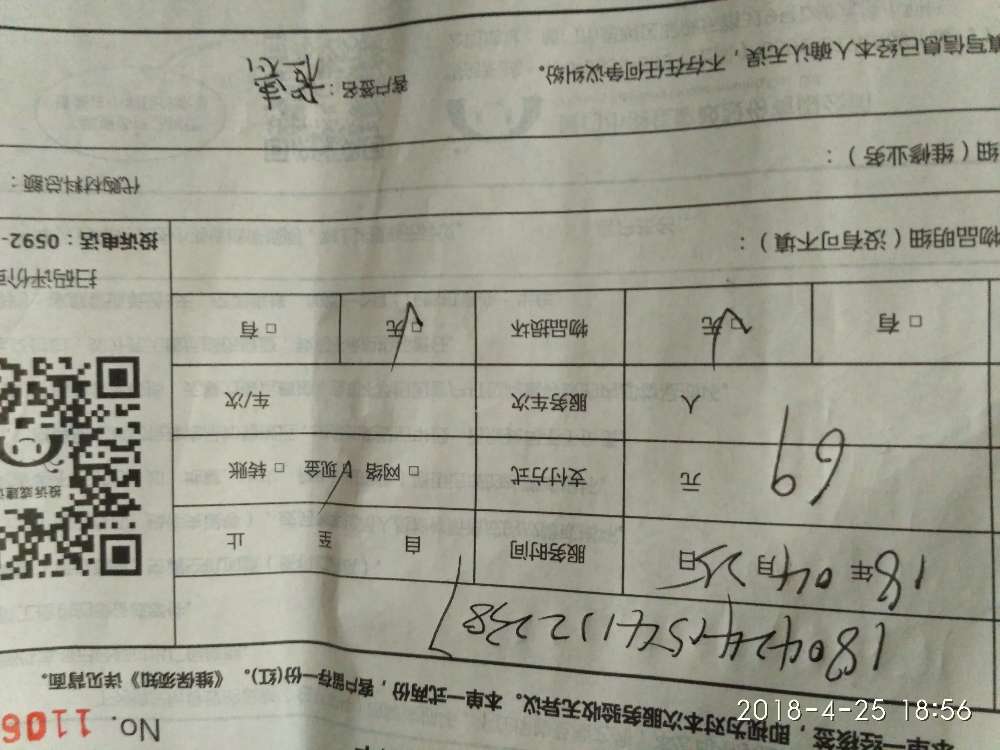 No. 1106
本单一经核签，即视为对本次服务验收无异议。本单一式两份，客户留存一份(红)。《维保须知》详见背面。
18年04月25日 服务时间 自 至 止
69 元 支付方式 □ 网络 □ 现金 □ 转账
人 服务车次 车/次
□ 有 □ 无 物品损坏 □ 无 □ 有
扫码评价
投诉或建议
物品明细（没有可不填）： 投诉电话：0592-
细（维修业务）： 代购材料总额：
填写信息已经本人确认无误，不存在任何争议纠纷。 客户签名：
2018-4-25 18:56